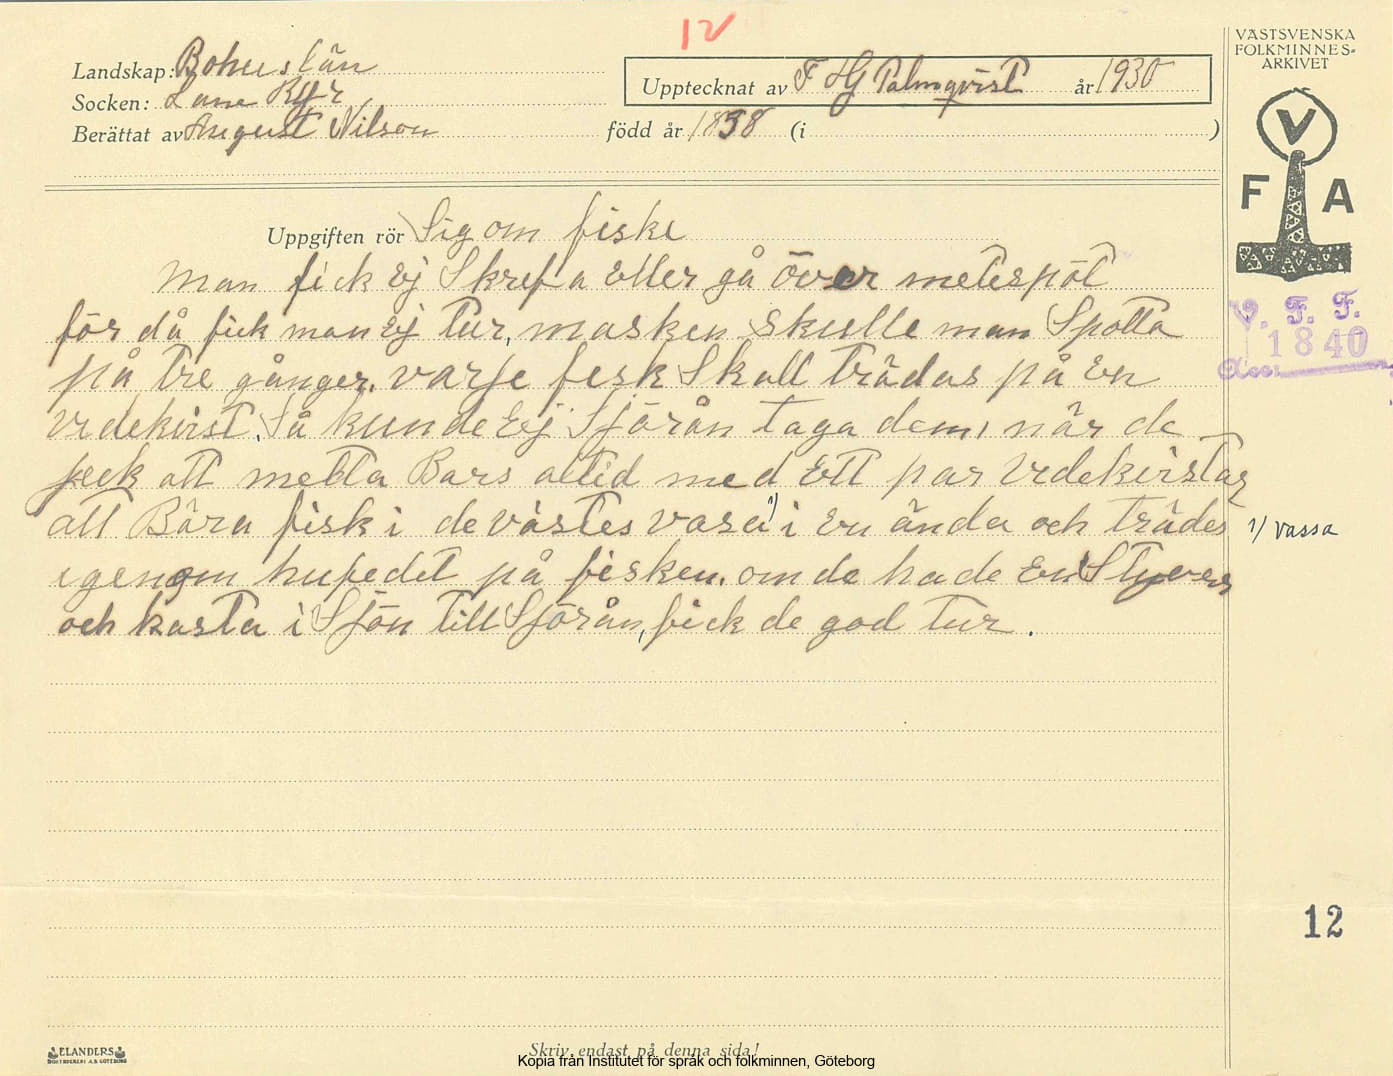 12
VÄSTSVENSKA
FOLKMINNES-
ARKIVET
Landskap: Bohuslän
Upptecknat av F HG Palmqvist år 1930
Socken: Lane Ryr
Berättat av August Nilson född år 1858 (i )
V
F A
Uppgiften rör Sig om fiske
Man fick Ej Skrefa Eller gå över metespöt
för då fick man Ej tur, masken skulle man Spotta
på tre gånger. varje fesk Skall trädas på En
vrdekvist. Så kunde Ej Sjörån taga dem, när de
feck att metta Bars altid med Ett par vrdekvistar
att Bära fisk i de västes vasa 1) i En ända och trädes
igenom hufedet på fisken. om de hade En Styver
och kasta i Sjön till Sjörån, fick de god tur.
1) vassa
V. F. F.
1840
Acc:
12
ELANDERS
BOKTRYCKERI A.B. GÖTEBORG
Skriv endast på denna sida!
Kopia från Institutet för språk och folkminnen, Göteborg